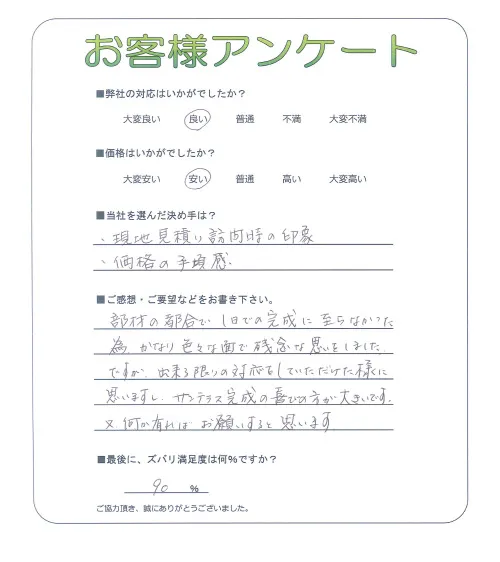 お客様アンケート
■弊社の対応はいかがでしたか？
大変良い 良い 普通 不満 大変不満
■価格はいかがでしたか？
大変安い 安い 普通 高い 大変高い
■当社を選んだ決め手は？
・現地見積り訪問時の印象
・価格の手頃感
■ご感想・ご要望などをお書き下さい。
部材の都合で1日での完成に至らなかった
為、かなり色々な面で残念な思いをしました.
ですが、出来る限りの対応をしていただけた様に
思いますし、サンテラス完成の喜びの方が大きいです.
又、何か有ればお願いすると思います
■最後に、ズバリ満足度は何%ですか？
90 %
ご協力頂き、誠にありがとうございました。